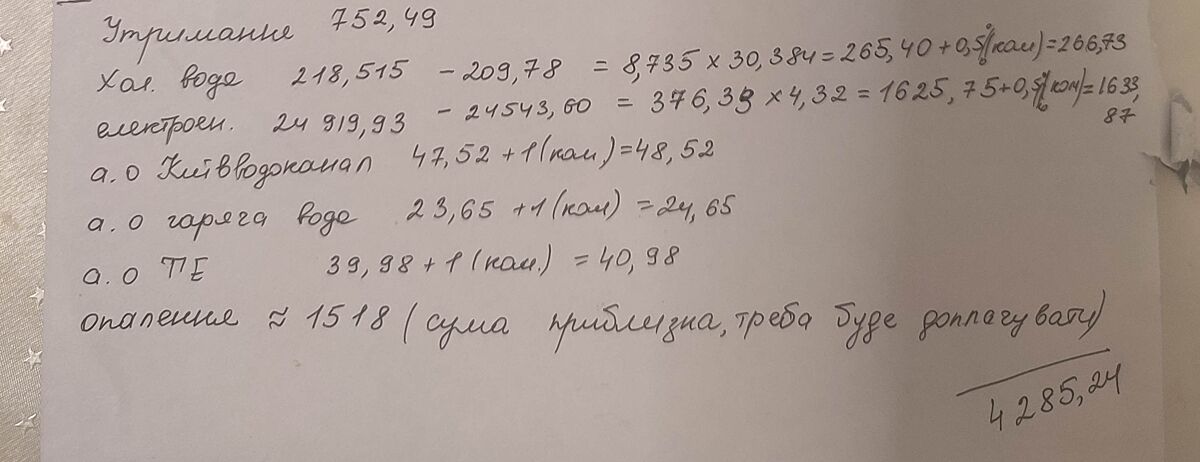 Утримання 752,49
Хол. вода 218,515 - 209,78 = 8,735 x 30,384 = 265,40 + 0,5%(ком) = 266,73
електроен. 24 919,93 - 24543,60 = 376,33 x 4,32 = 1625,75 + 0,5%(ком) = 1633,
87
а.о Київводоканал 47,52 + 1 (ком) = 48,52
а.о гаряча вода 23,65 + 1 (ком) = 24,65
а.о ТЕ 39,98 + 1 (ком.) = 40,98
опалення ≈ 1518 (сума приблизна, треба буде доплачувати)
4285,24